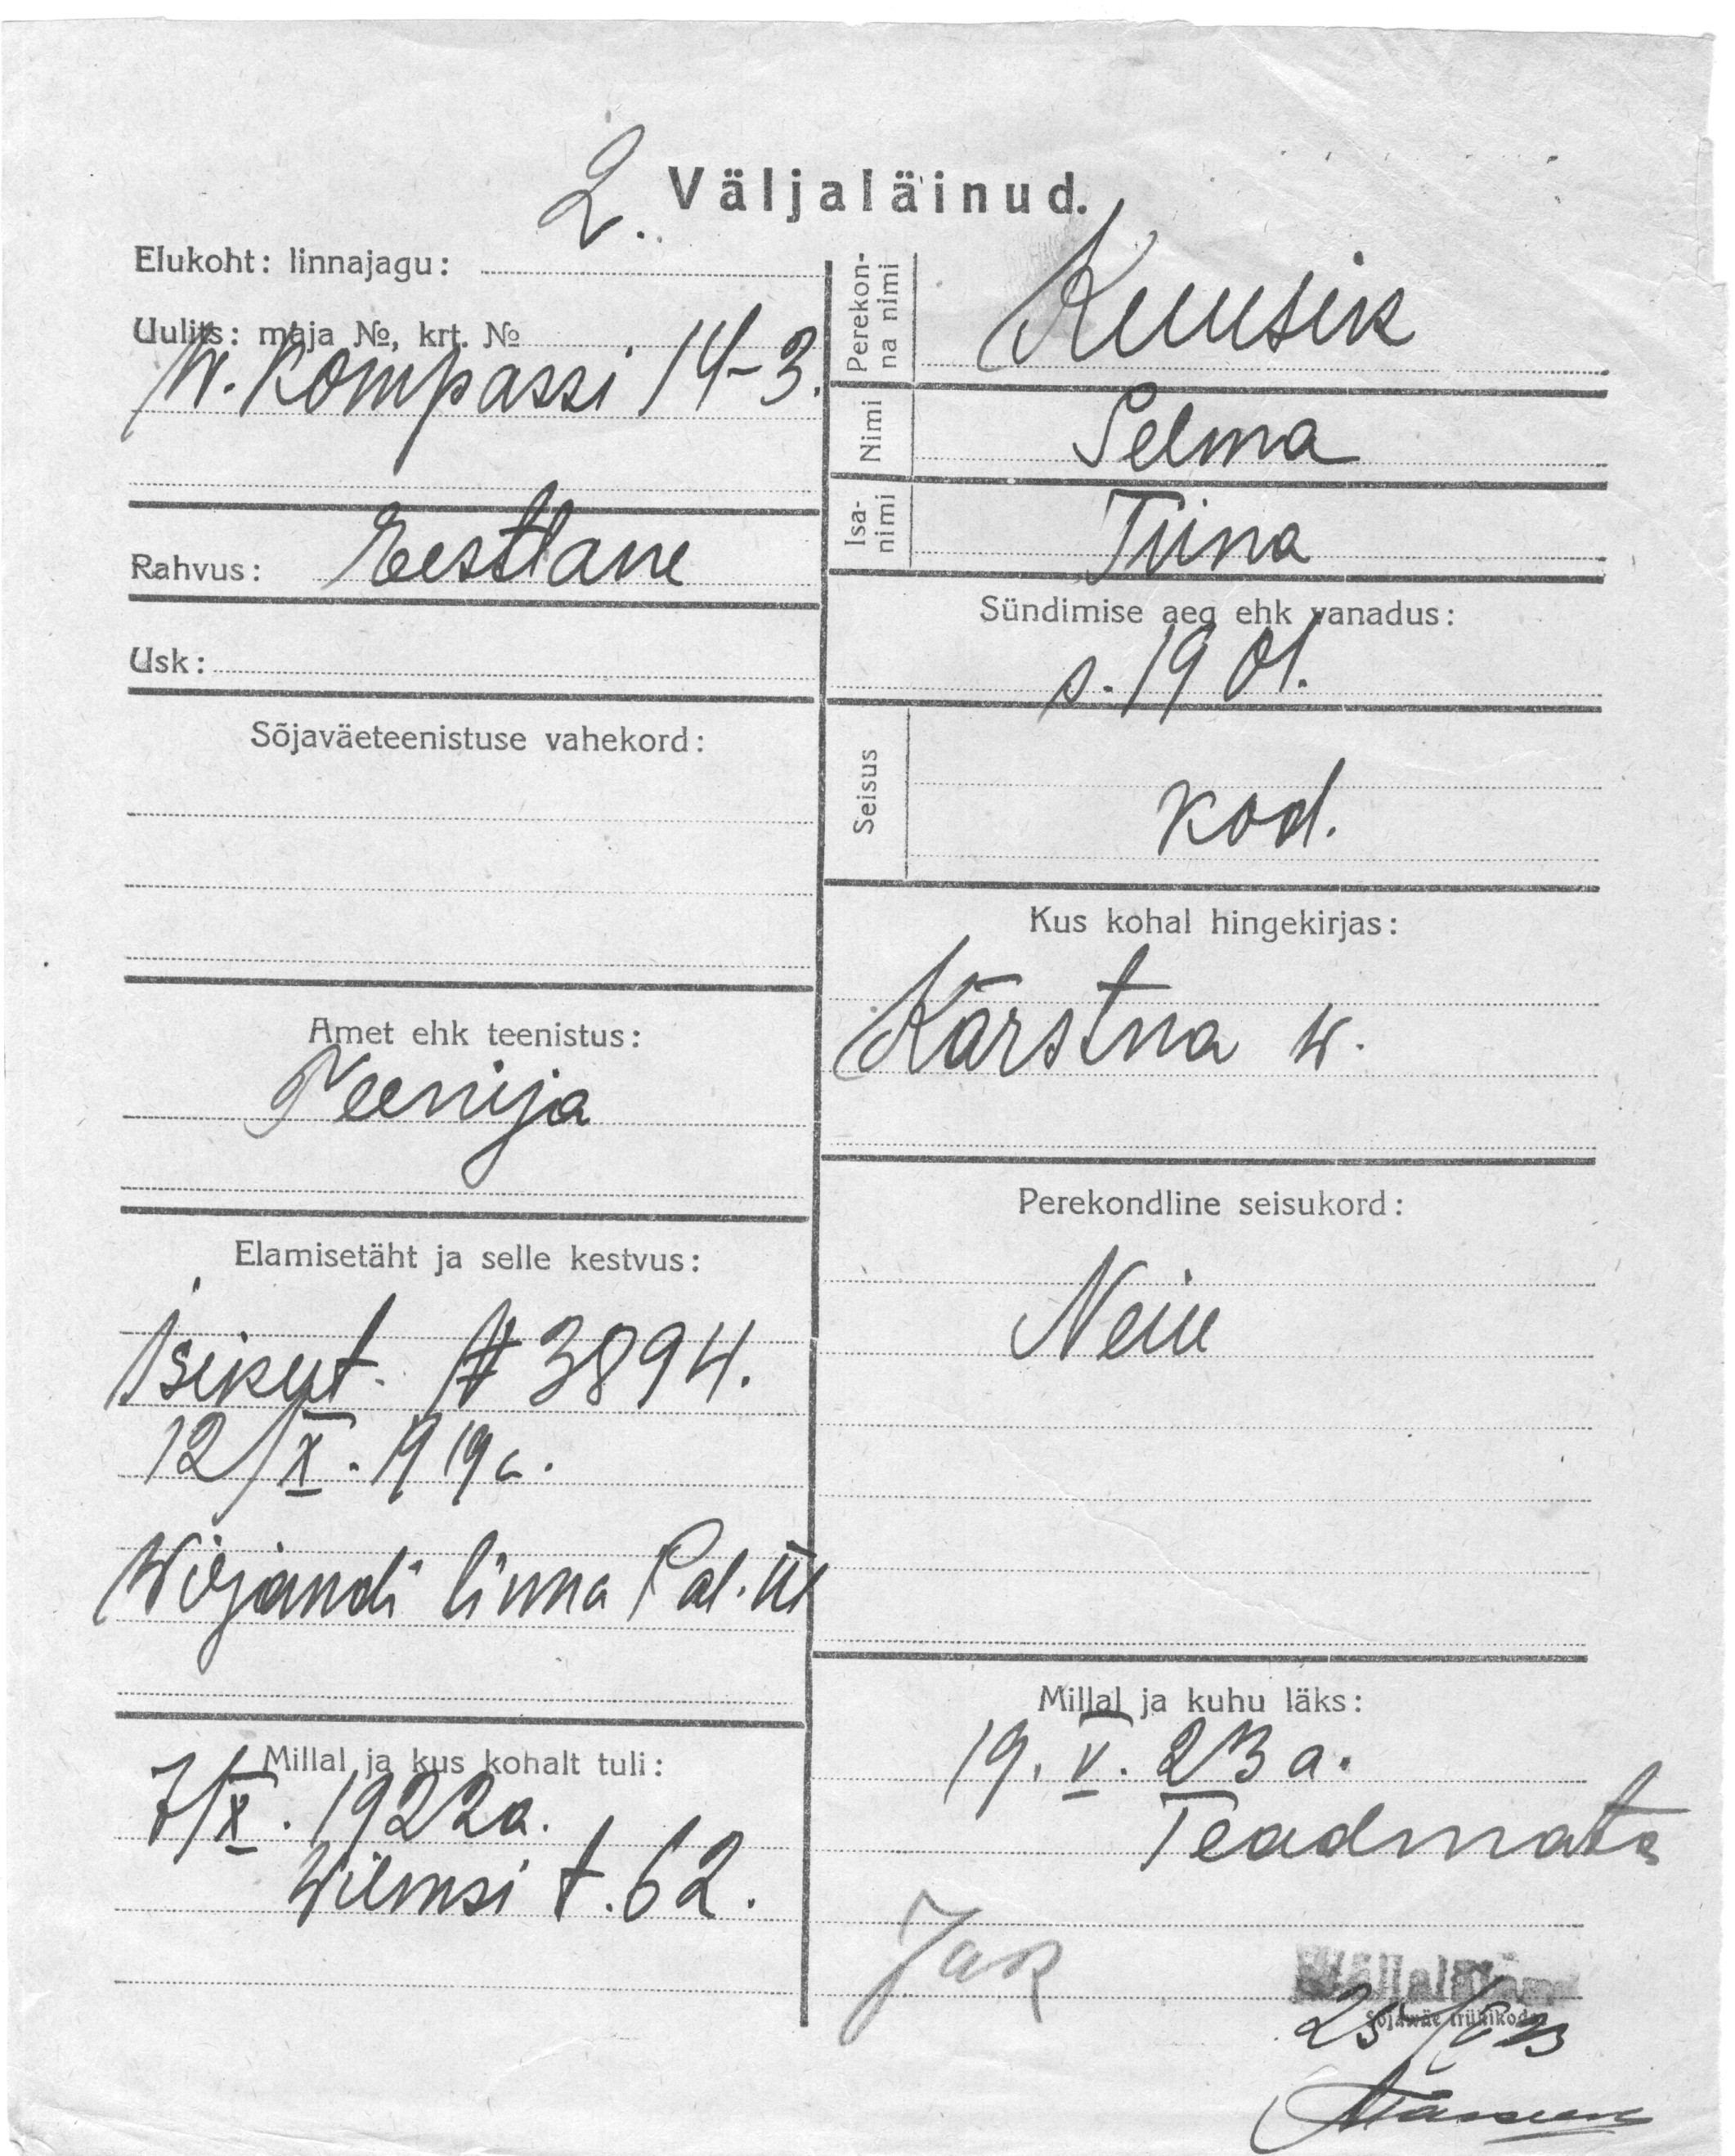 2. Väljaläinud.
Elukoht: linnajagu:
Uulits: maja №, krt. №
W. Kompassi 14-3.
Rahvus: Eestlane
Usk:
Sõjaväeteenistuse vahekord:
Amet ehk teenistus:
Teenija
Elamisetäht ja selle kestvus:
Isikut. № 3894.
12/X. 1919 a.
Wiljandi linna Pol.
Millal ja kus kohalt tuli:
7/X. 1922 a.
Wilmsi t. 62.
Perekonna nimi
Kuusik
Nimi
Selma
Isanimi
Tiina
Sündimise aeg ehk vanadus:
s. 1901.
Seisus
kod.
Kus kohal hingekirjas:
Kärstna w.
Perekondline seisukord:
Neiu
Millal ja kuhu läks:
19. V. 23 a.
Teadmata
Jak
Väljaläinud
Sõjawäe trükikoda
25/V 23